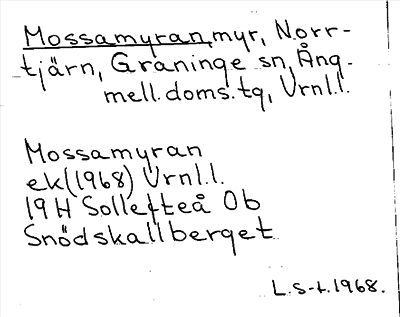 Mossamyran, myr, Norr-
tjärn, Graninge sn, Ång.
mell. doms. tg, Vrnl.l.
Mossamyran
ek (1968) Vrnl.l.
19 H Sollefteå 0b
Snödskallberget
L. S-t. 1968.